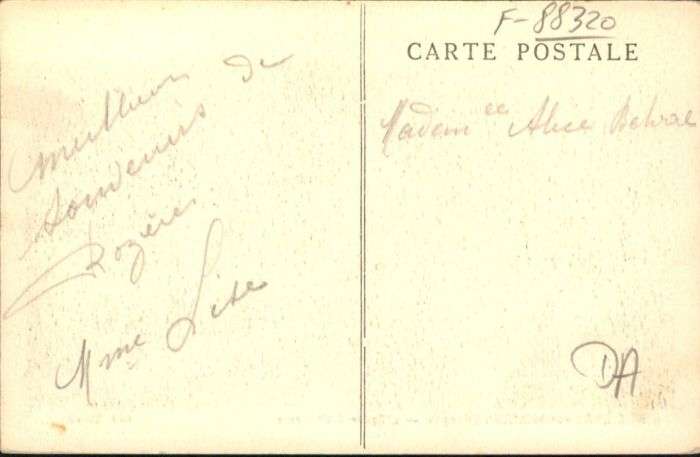 F-88320
CARTE POSTALE
Meilleurs
de
Souvenirs
Rozières
Mme Lise
Madem elle Alice
DA